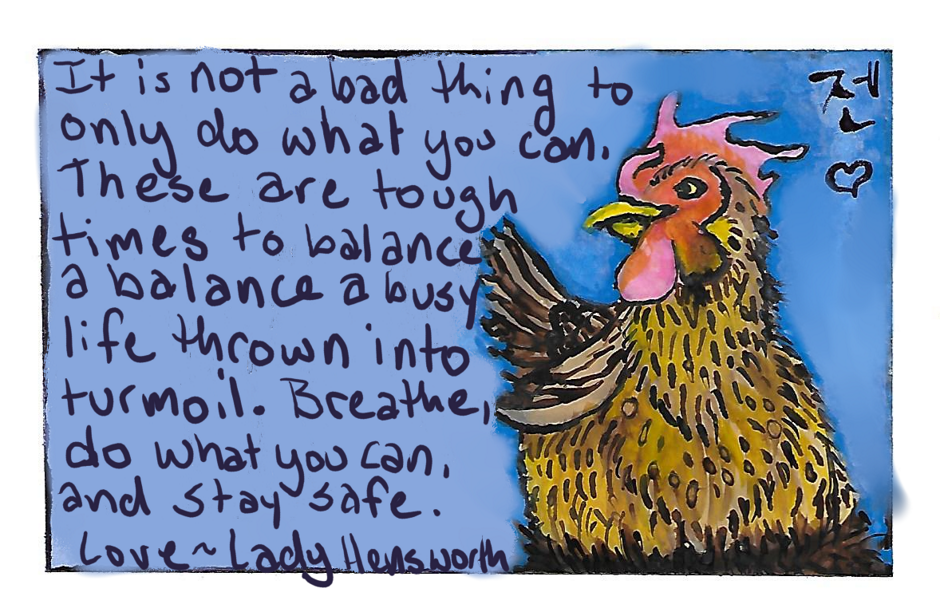 It is not a bad thing to
only do what you can.
These are tough
times to balance
a balance a busy
life thrown into
turmoil. Breathe,
do what you can,
and stay safe.
Love~Lady Hensworth
전